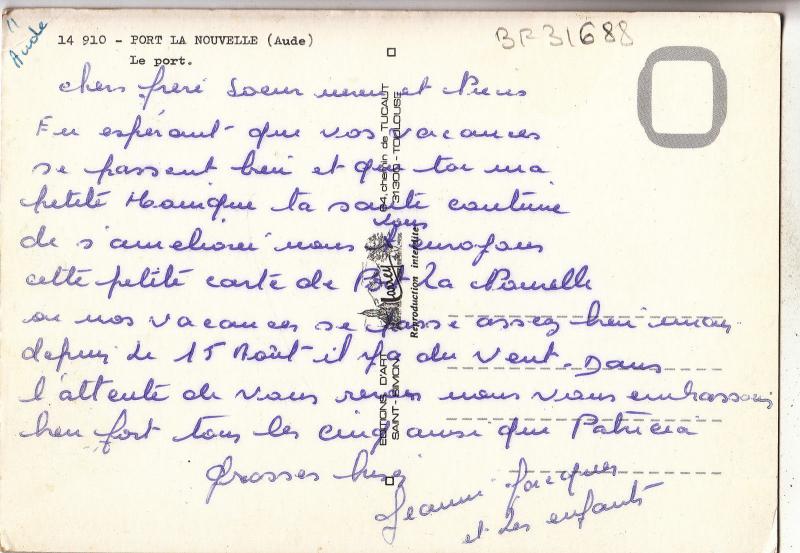 Aude
14 910 - PORT LA NOUVELLE (Aude)
Le port.
BF31688
chers frere soeur et
En espérant que vos vacances
se passent bien et que toi ma
petite Monique ta santé continue
de s'ameliorer nous vous envoyons
cette petite carte de La Nouvelle
ou nos vacances se passe assez bien mais
depuis le 15 Août il y a du vent. Dans
l'attente de vous revoir nous vous embrassons
bien fort tous les cinq ainsi que Patricia
Grosses bises
Jeannine Jacques
et Les enfants
EDITIONS D'ART
SAINT-SIMON
Larrey
64, chemin de TUCAUT
31300 - TOULOUSE
Reproduction interdite